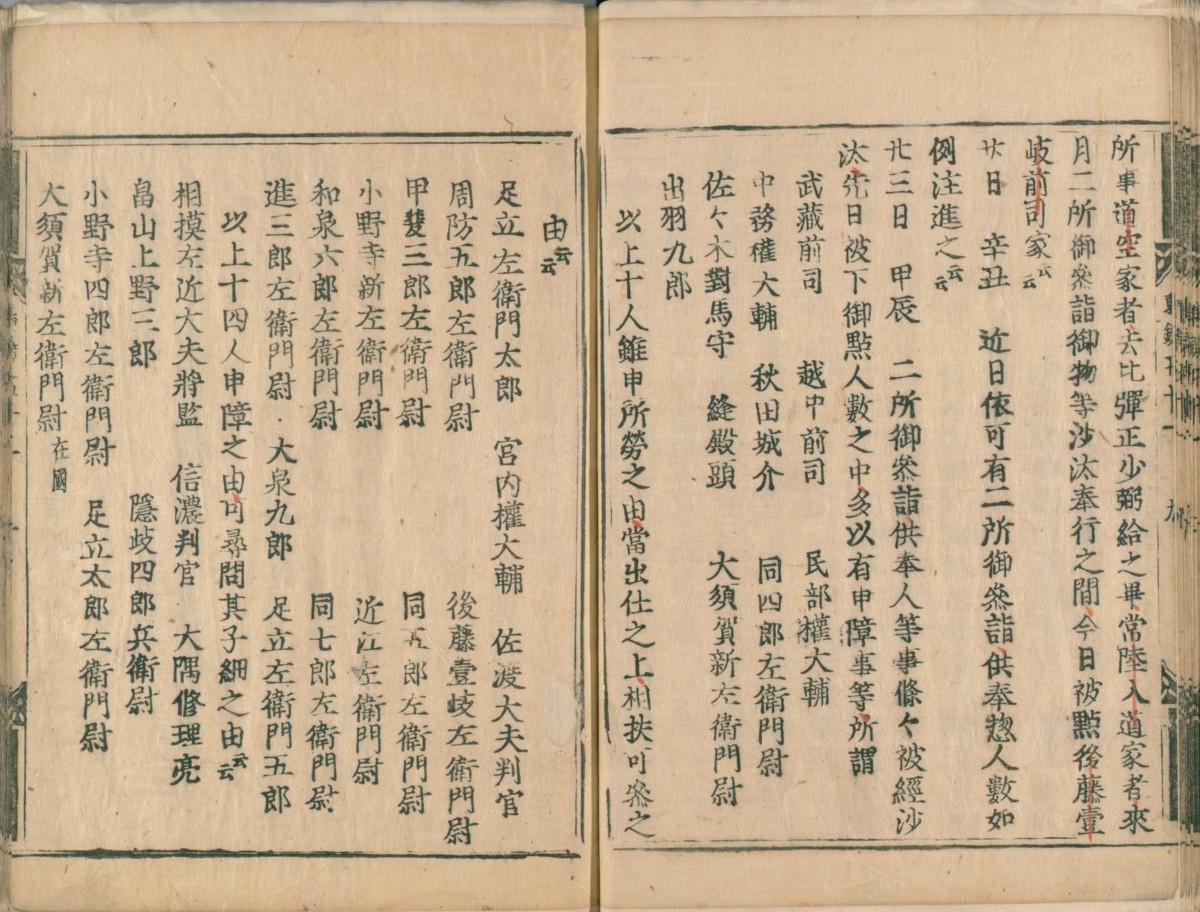 所事道空家者去比彈正少弼給之畢常陸入道家者來
月二所御參詣御物等沙汰奉行之間今日被點後藤壹
岐前司家云云
廿日　辛丑　近日依可有二所御參詣供奉惣人數如
例注進之云云
廿三日　甲辰　二所御參詣供奉人等事條々被經沙
汰先日被下御點人數之中多以有申障事等所謂
武藏前司　越中前司　民部權大輔
中務權大輔　秋田城介　同四郎左衛門尉
佐々木對馬守　縫殿頭　大須賀新左衛門尉
出羽九郎
以上十人雖申所勞之由當出仕之上相扶可參之
由云云
足立左衛門太郎　宮内權大輔　佐渡大夫判官
周防五郎左衛門尉　後藤壹岐左衛門尉
甲斐三郎左衛門尉　同五郎左衛門尉
小野寺新左衛門尉　近江左衛門尉
和泉六郎左衛門尉　同七郎左衛門尉
進三郎左衛門尉・大泉九郎　足立左衛門五郎
以上十四人申障之由可尋問其子細之由云云
相摸左近大夫將監　信濃判官　大隅修理亮
畠山上野三郎　隱岐四郎兵衛尉
小野寺四郎左衛門尉　足立太郎左衛門尉
大須賀新左衛門尉在國